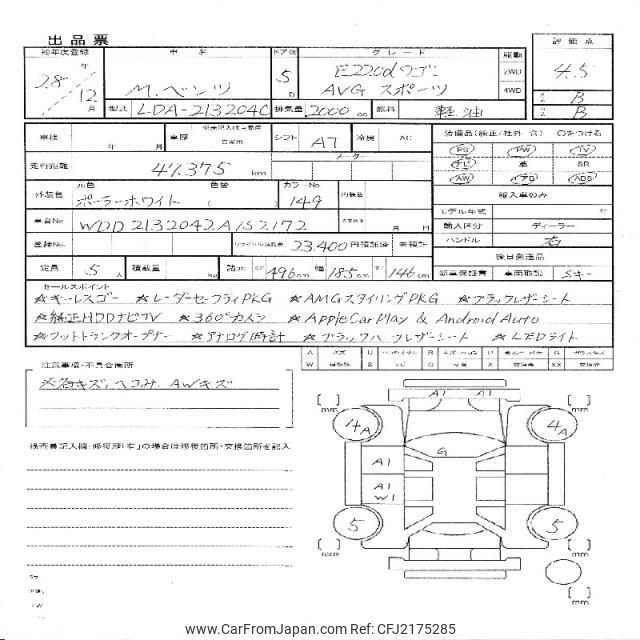 出品票
初年度登録 車名 ドア数 グレード 駆動 評価点
28年12月 M.ベンツ 5D E220dワゴン AVG スポーツ 2WD 4WD 4.5
型式 LDA-213204C 排気量 2000cc 燃料 軽油 B B
車検 年 月 車歴 自家用 シフト A7 冷房 AC 装備品(純正/社外 含) ○をつける
PS PW TV
走行距離 47,375km メーター
ナビ 革 SR
AW ABS
外装色 元色 色替 カラーNo
ポーラーホワイト ( ) 149 内装色 輸入車のみ
モデル年式 年
車台No. WDD2132042A152172 月 円 輸入区分 ディーラー
登録No. リサイクル預託金 23,400円預託済 未預託 ハンドル 右
後日発送品
定員 5人 積載量 kg 諸元 496cm 幅 185cm 146cm 新車保証書 車両取説 Sキー
セールスポイント
☆キーレスゴー ☆レーダーセーフティPKG ☆AMGスタイリングPKG ☆ブラックレザーシート
☆純正HDDナビTV ☆360°カメラ ☆AppleCarPlay & Android Auto
☆フットトランクオープナー ☆アナログ時計 ☆ブラックハーフレザーシート ☆LEDライト
A キズ U B D G
W S C X XX
注意事項・不具合箇所
※各キズ、ヘコみ、AWキズ
検査員記入欄(修復歴「有」の場合は修復箇所・交換箇所を記入)
A1 A1
[ ]mm [ ]mm
4A 4A
G
A1
A1
W1
5 5
[ ]mm [ ]mm
[ ]mm
www.CarFromJapan.com Ref: CFJ2175285